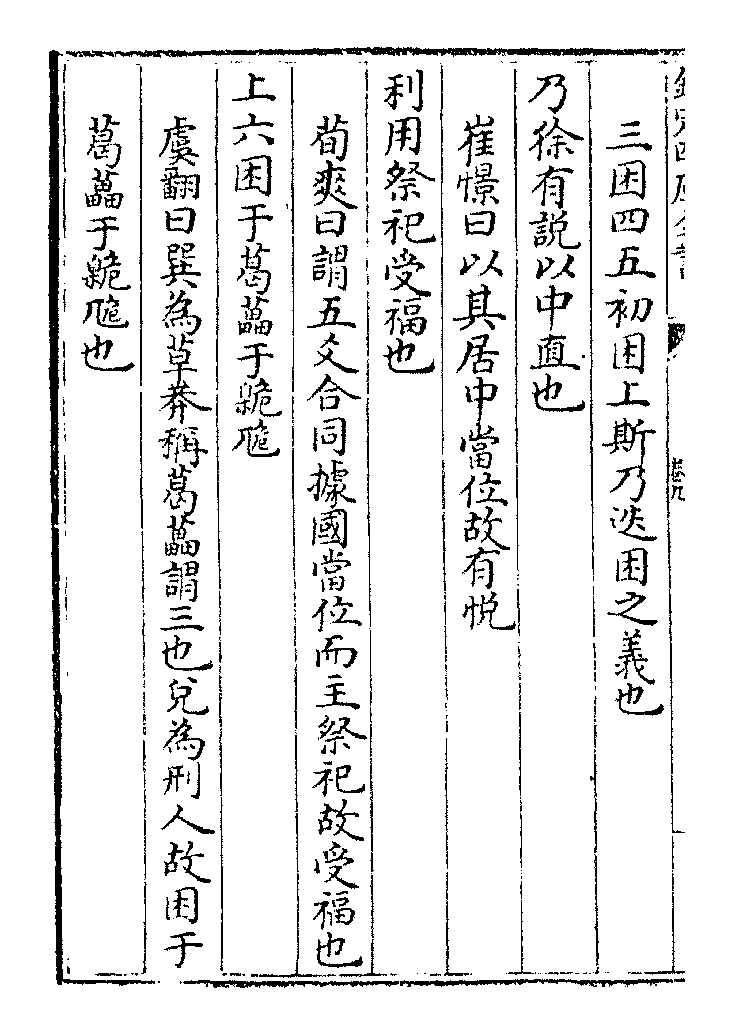 欽定四庫全書
三困四五初困上斯乃迭困之義也
乃徐有説以中直也
崔憬曰以其居中當位故有悦
利用祭祀受福也
荀爽曰謂五爻合同據國當位而主祭祀故受福也
上六困于葛藟于臲卼
虞翻曰巽為草莽稱葛藟謂三也兌為刑人故困于
葛藟于臲卼也